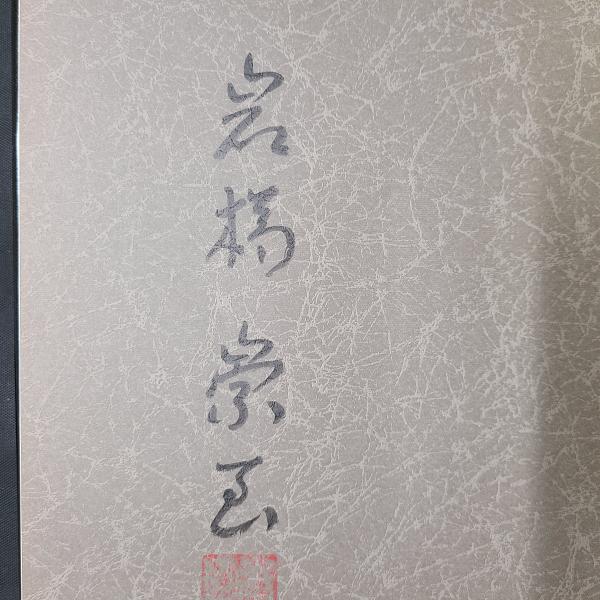 岩橋崇至